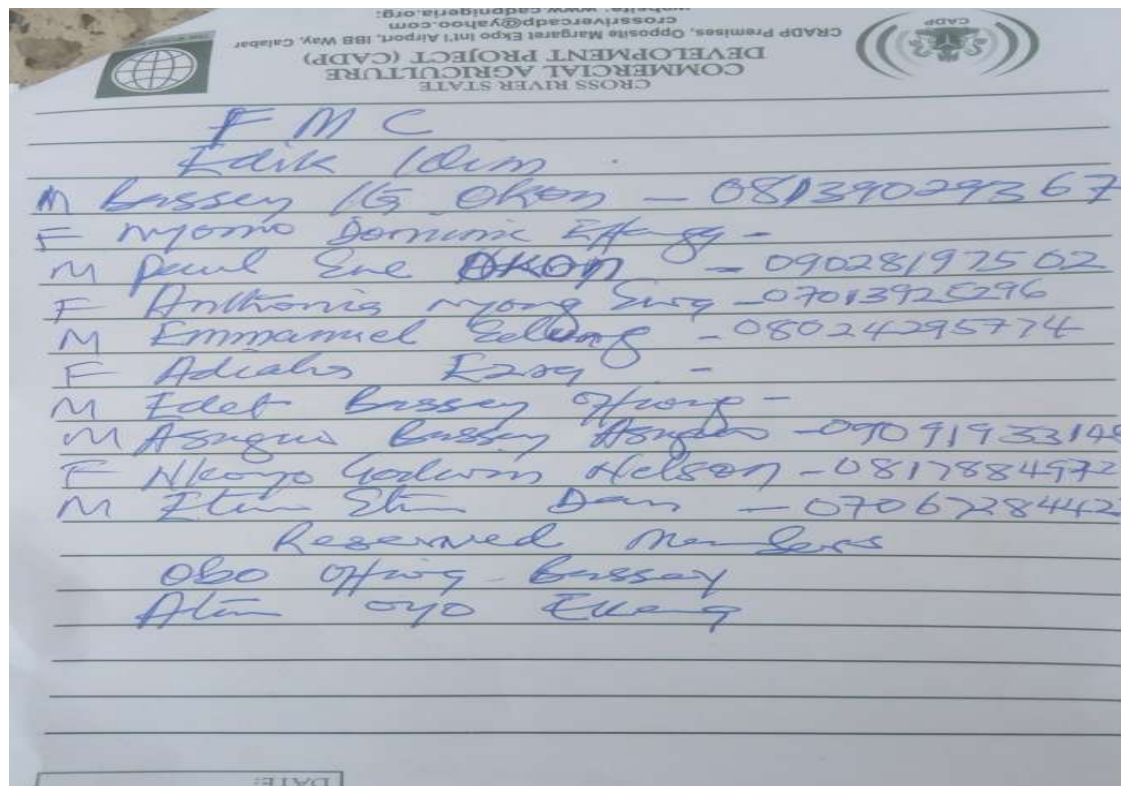 CROSS RIVER STATE
COMMERCIAL AGRICULTURE
DEVELOPMENT PROJECT (CADP)
CRADP Premises, Opposite Margaret Ekpo Int'l Airport, IBB Way, Calabar
crossrivercadp@yahoo.com
website: www.cadpnigeria.org
CADP
F M C
Edik Idim
M Bassey Okon - 08139029367
F Nyomo Dominic Effangg -
M Paul Ene OKON - 09028197502
F Anthonia Nyong - 07013925296
M Emmanuel - 08024295774
F
M Edet Bassey Offiong -
M Asuquo Bassey Asuquo - 090919331
F Nkoyo Godwin Nelson - 0817884972
M Etim Etim Dan - 0706228442
Reserved Members
Obo Offiong Bassey
Atim oyo Ekeng
DATE: